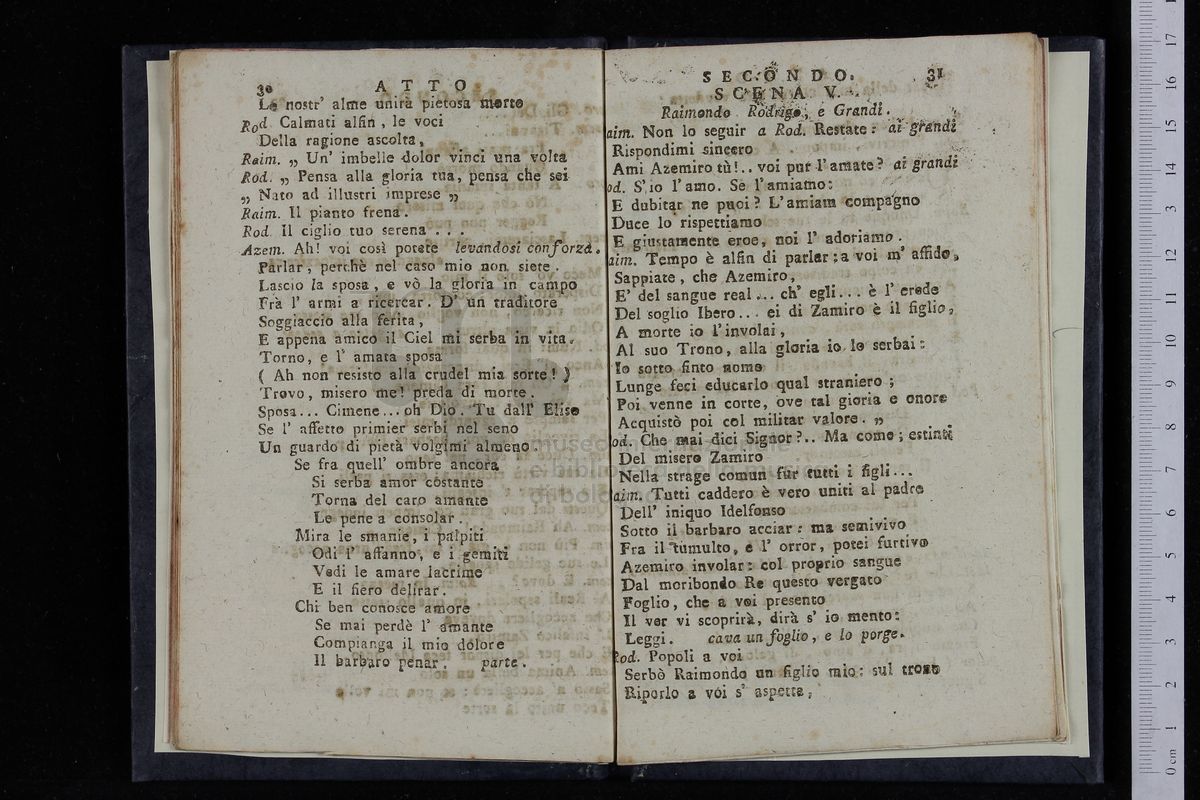 30
ATTO
Le nostr' alme unirà pietosa morte
Rod. Calmati alfin, le voci
Della ragione ascolta,
Raim. „ Un' imbelle dolor vinci una volta
Rod. „ Pensa alla gloria tua, pensa che sei
„ Nato ad illustri imprese „
Raim. Il pianto frena.
Rod. Il ciglio tuo serena . . .
Azem. Ah! voi così potete levandosi con forza.
Parlar, perchè nel caso mio non siete.
Lascio la sposa, e vò la gloria in campo
Frà l' armi a ricercar. D' un traditore
Soggiaccio alla ferita,
E appena amico il Ciel mi serba in vita.
Torno, e l' amata sposa
( Ah non resisto alla crudel mia sorte! )
Trovo, misero me! preda di morte.
Sposa... Cimene... oh Dio. Tu dall' Eliso
Se l' affetto primier serbi nel seno
Un guardo di pietà volgimi almeno.
Se fra quell' ombre ancora
Si serba amor costante
Torna del caro amante
Le pene a consolar.
Mira le smanie, i palpiti
Odi l' affanno, e i gemiti
Vedi le amare lacrime
E il fiero delirar.
Chi ben conosce amore
Se mai perdè l' amante
Compianga il mio dolore
Il barbaro penar. parte.
SECONDO. 31
SCENA V.
Raimondo Rodrigo, e Grandi.
aim. Non lo seguir a Rod. Restate: ai grandi
Rispondimi sincero
Ami Azemiro tù!.. voi pur l'amate? ai grandi
od. S'io l'amo. Se l'amiamo:
E dubitar ne puoi? L'amiam compagno
Duce lo rispettiamo
E giustamente eroe, noi l' adoriamo.
aim. Tempo è alfin di parlar: a voi m' affido,
Sappiate, che Azemiro,
E' del sangue real... ch' egli... è l' erede
Del soglio Ibero... ei di Zamiro è il figlio,
A morte io l'involai,
Al suo Trono, alla gloria io lo serbai:
Io sotto finto nome
Lunge feci educarlo qual straniero;
Poi venne in corte, ove tal gloria e onore
Acquistò poi col militar valore. „
od. Che mai dici Signor?.. Ma come; estinti
Del misero Zamiro
Nella strage comun fur tutti i figli...
aim. Tutti caddero è vero uniti al padre
Dell' iniquo Idelfonso
Sotto il barbaro acciar: ma semivivo
Fra il tumulto, e l' orror, potei furtivo
Azemiro involar: col proprio sangue
Dal moribondo Re questo vergato
Foglio, che a voi presento
Il ver vi scoprirà, dirà s' io mento:
Leggi. cava un foglio, e lo porge.
Rod. Popoli a voi
Serbò Raimondo un figlio mio: sul trono
Riporlo a voi s' aspetta,